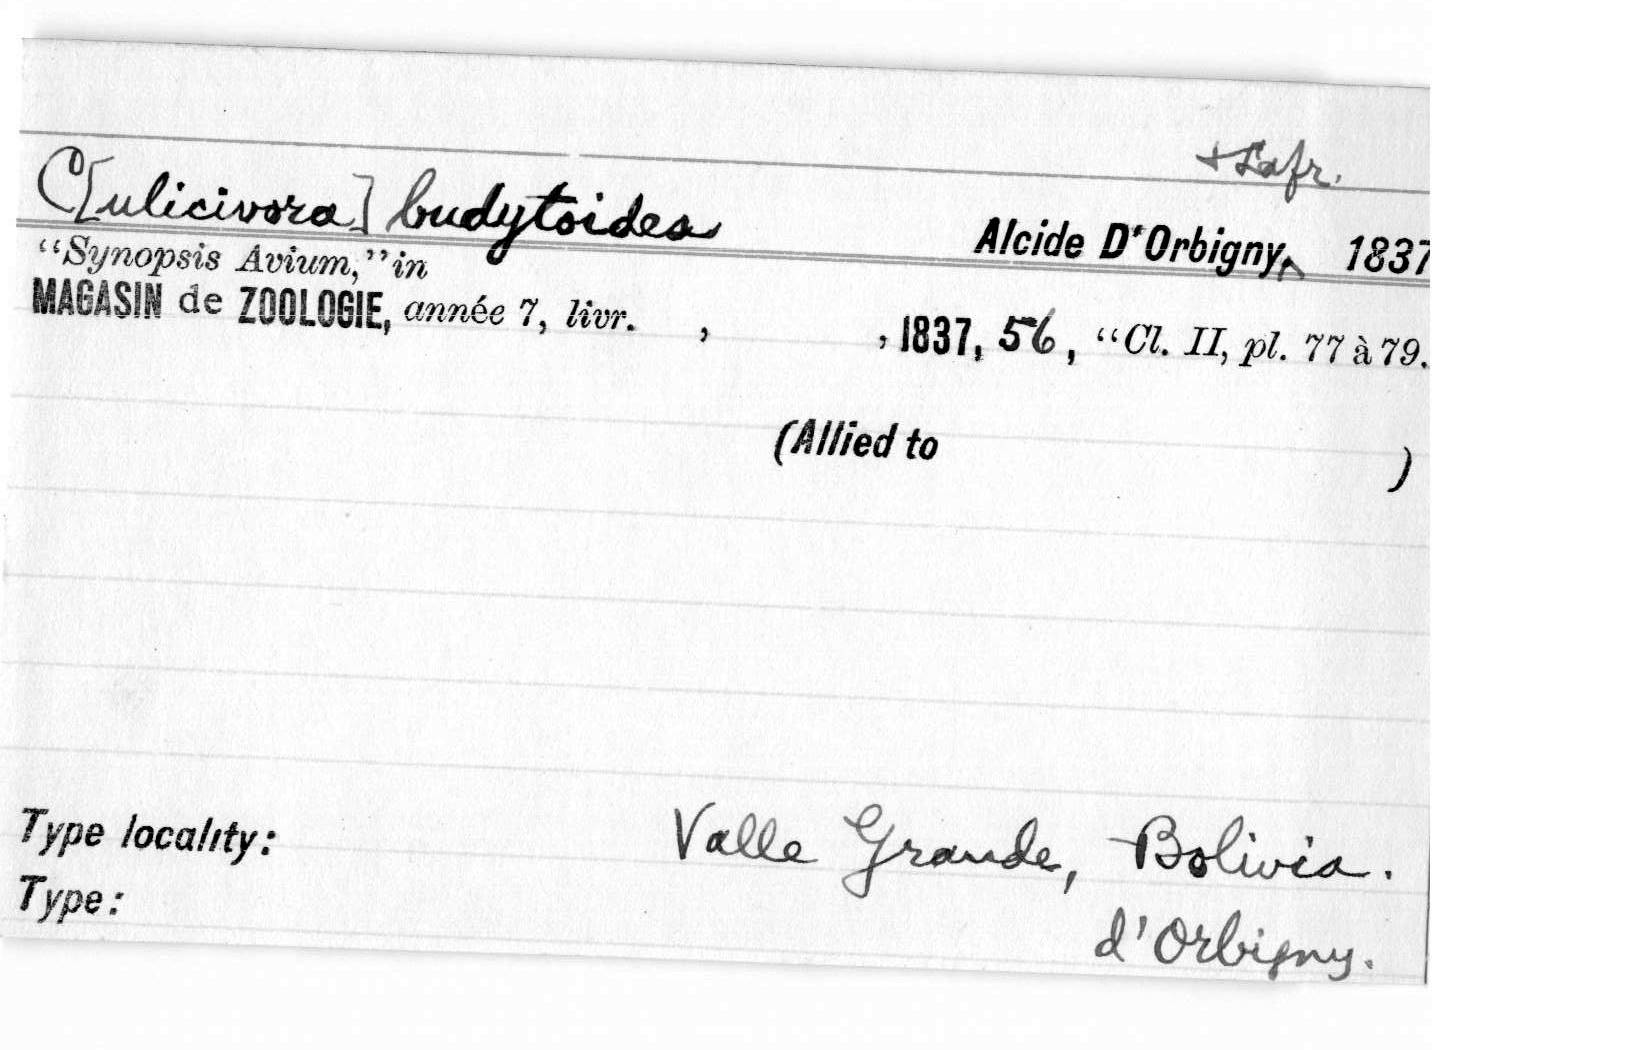 + Lafr.
C[ulicivora] budytoides Alcide D'Orbigny ^ 1837
“Synopsis Avium,” in
MAGASIN de ZOOLOGIE, année 7, livr. , , 1837, 56, “Cl. II, pl. 77 à 79.
(Allied to )
Type locality: Valle Grande, Bolivia.
Type: d'Orbigny.